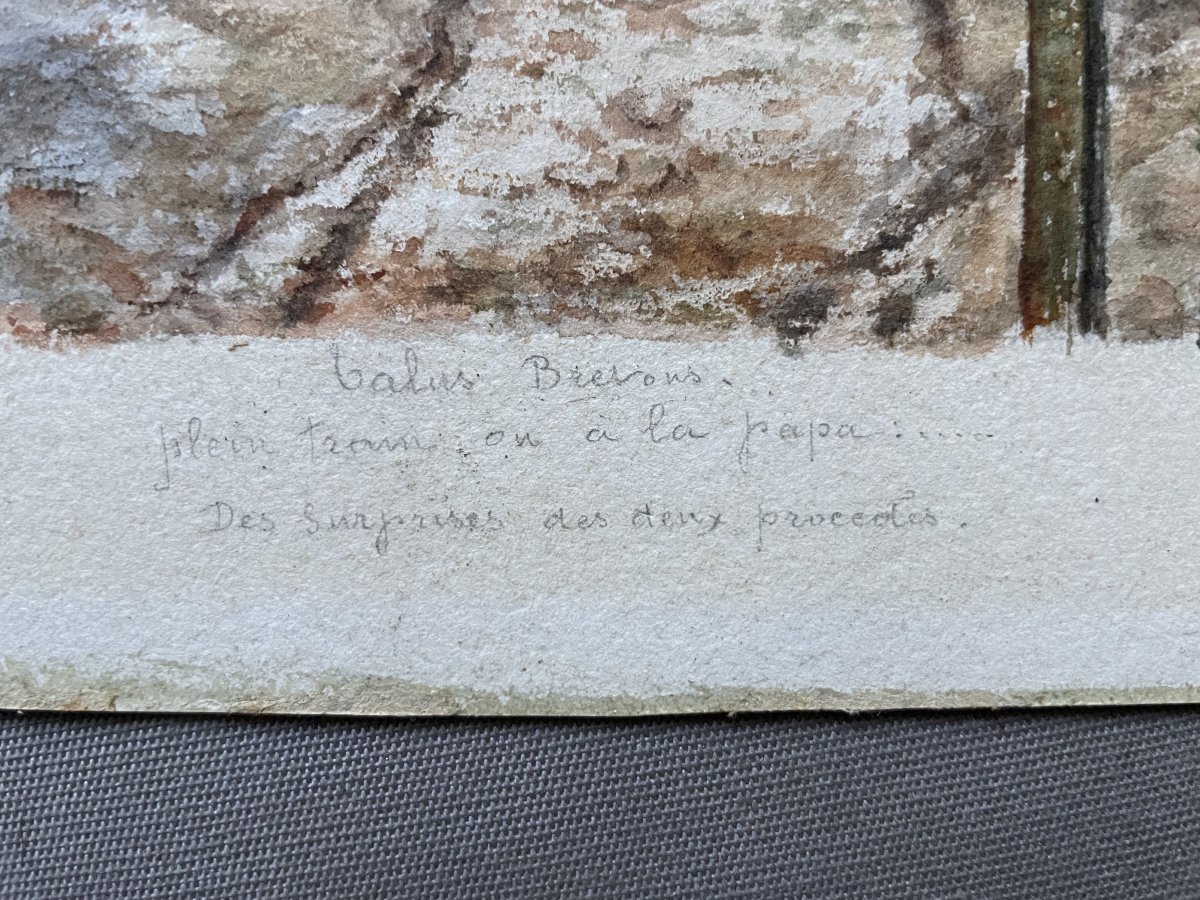 Talus Bretons.
plein train ou à la papa :.....
Des surprises des deux procédés.